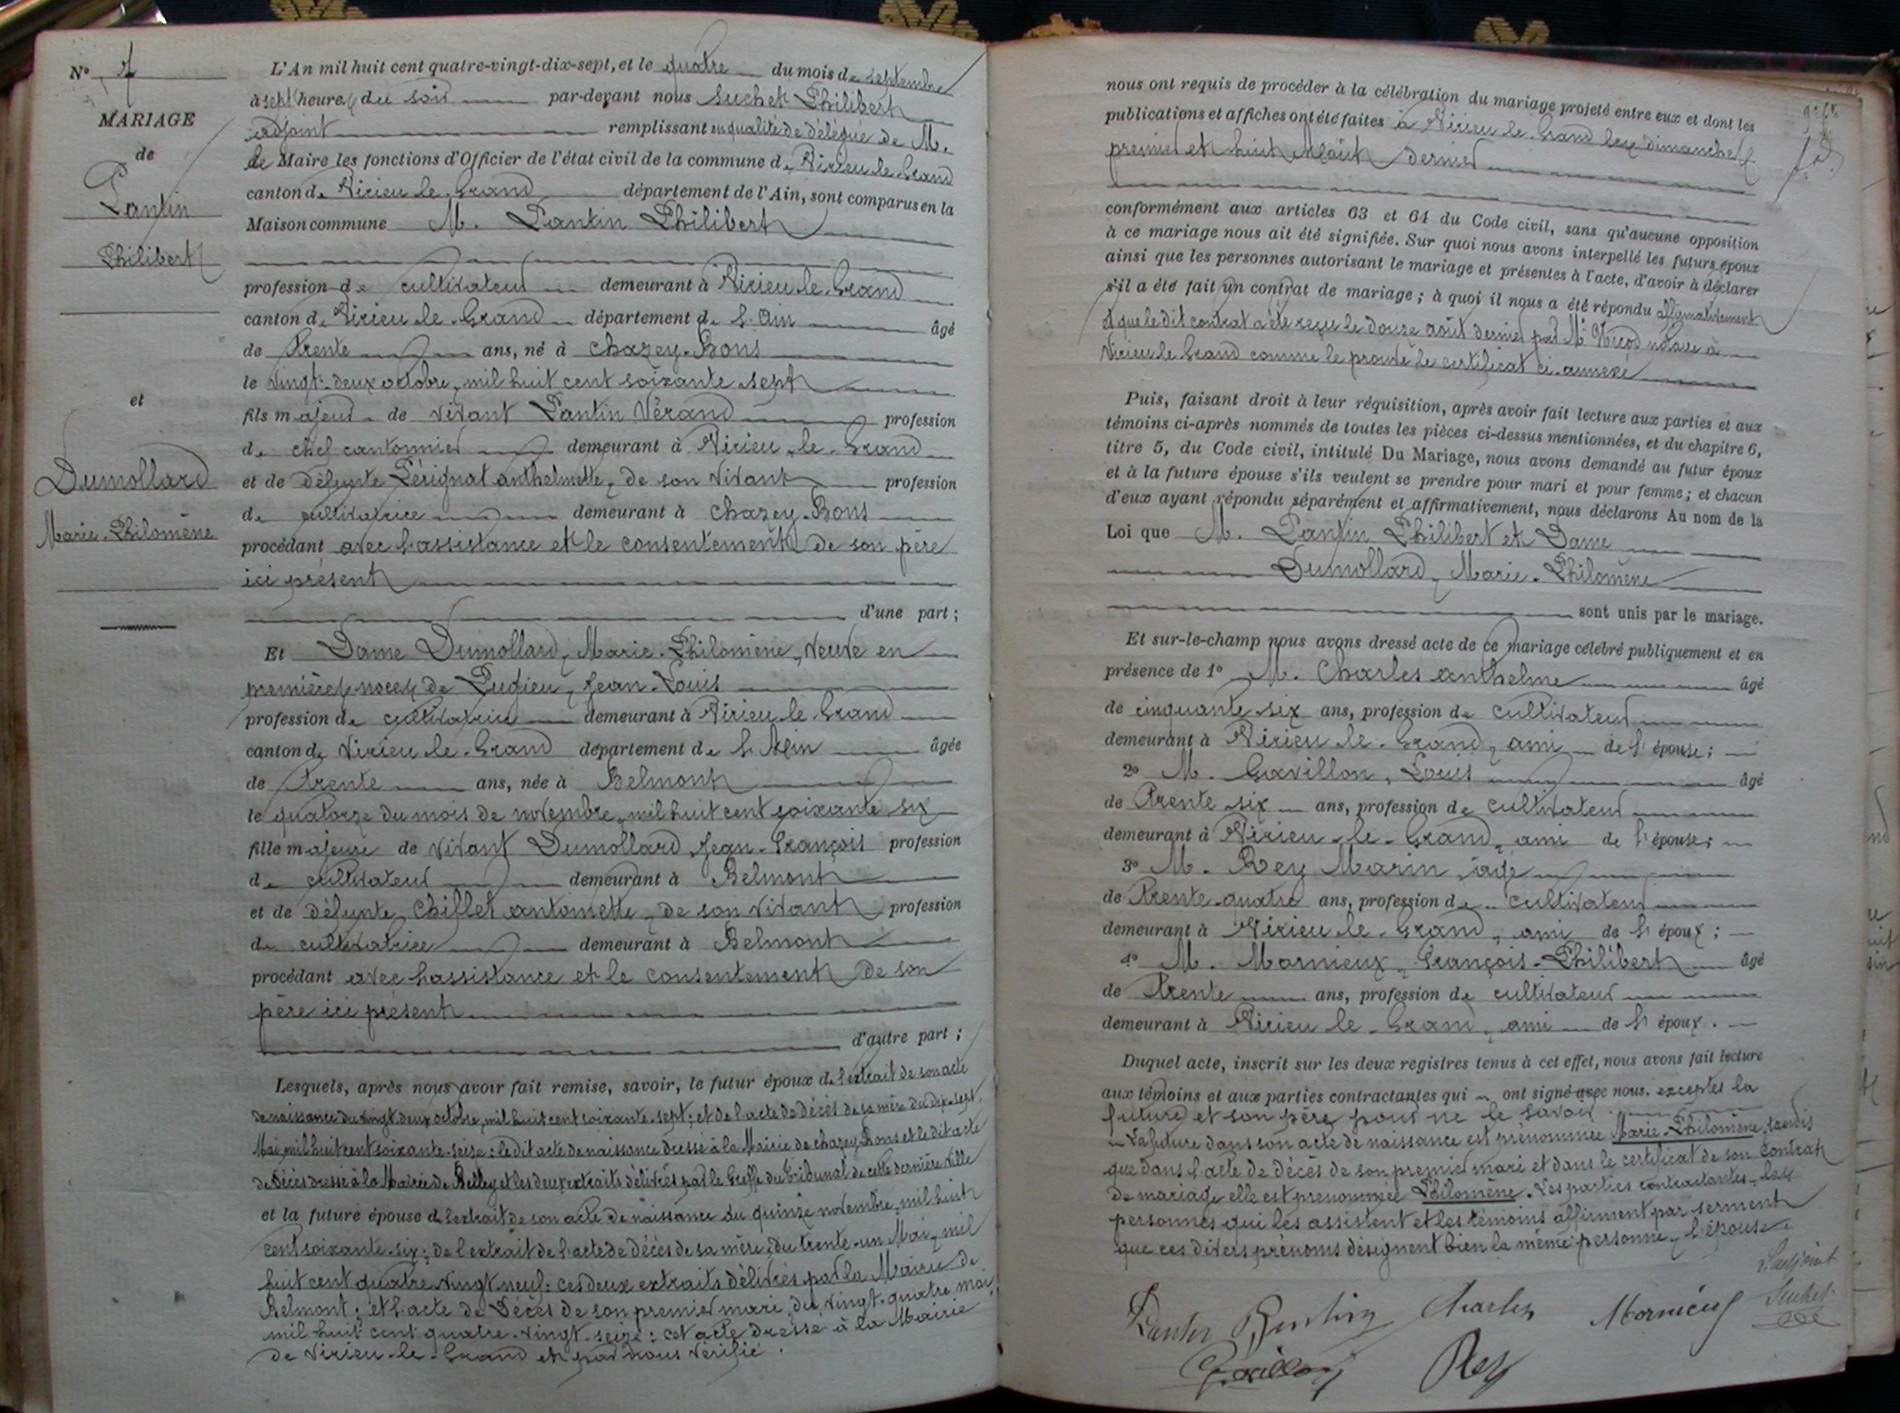 N° 7
MARIAGE
de
Pantin
Philibert
et
Dumollard
Marie-Philomène
L'An mil huit cent quatre-vingt-dix-sept, et le quatre du mois de septembre
à sept heures du soir par-devant nous Suchet Philibert
adjoint remplissant en qualité de délégué de M.
le Maire les fonctions d'Officier de l'état civil de la commune de Virieu-le-Grand
canton de Virieu-le-Grand département de l'Ain, sont comparus en la
Maison commune M. Pantin Philibert
profession de cultivateur demeurant à Virieu-le-Grand
canton de Virieu-le-Grand département de l'Ain âgé
de trente ans, né à Chazey-Bons
le vingt-deux octobre, mil huit cent soixante-sept
fils majeur de vivant Pantin Vérand profession
de chef cantonnier demeurant à Virieu-le-Grand
et de défunte Pérignat anthelmette, de son vivant profession
de cultivatrice demeurant à Chazey-Bons
procédant avec l'assistance et le consentement de son père
ici présent
d'une part ;
Et Dame Dumollard, Marie-Philomène, veuve en
premières noces de Pugieu, Jean-Louis
profession de cultivatrice demeurant à Virieu-le-Grand
canton de Virieu-le-Grand département de l'Ain âgée
de trente ans, née à Belmont
le quatorze du mois de novembre, mil huit cent soixante-six
fille majeure de vivant Dumollard Jean-François profession
de cultivateur demeurant à Belmont
et de défunte Chiffet antoinette, de son vivant profession
de cultivatrice demeurant à Belmont
procédant avec l'assistance et le consentement de son
père ici présent
d'autre part ;
Lesquels, après nous avoir fait remise, savoir, le futur époux de l'extrait de son acte
de naissance du vingt deux octobre, mil huit cent soixante-sept ; et de l'acte de décès de sa mère du dix-sept
Mai, mil huit cent soixante-seize : le dit acte de naissance dressé à la Mairie de Chazey-Bons et le dit acte
de Décès dressé à la Mairie de Belley et les deux extraits délivrés par le Greffe du Tribunal de cette dernière ville
et la future épouse de l'extrait de son acte de naissance du quinze novembre, mil huit
cent soixante-six ; de l'extrait de l'acte de décès de sa mère, du trente-un Mai, mil
huit cent quatre-vingt-neuf : ces deux extraits délivrés par la Mairie de
Belmont ; et l'acte de Décès de son premier mari, du vingt-quatre mai
mil huit cent quatre-vingt-seize : cet acte dressé à la Mairie
de Virieu-le-Grand et par nous vérifié.
nous ont requis de procéder à la célébration du mariage projeté entre eux et dont les
publications et affiches ont été faites à Virieu-le-Grand les dimanches
premier et huit Août dernier
conformément aux articles 63 et 64 du Code civil, sans qu'aucune opposition
à ce mariage nous ait été signifiée. Sur quoi nous avons interpellé les futurs époux
ainsi que les personnes autorisant le mariage et présentes à l'acte, d'avoir à déclarer
s'il a été fait un contrat de mariage ; à quoi il nous a été répondu affirmativement
et que le dit contrat a été reçu le douze août dernier par Me Nicod notaire à
Virieu-le-Grand comme le prouve le certificat ci-annexé
Puis, faisant droit à leur réquisition, après avoir fait lecture aux parties et aux
témoins ci-après nommés de toutes les pièces ci-dessus mentionnées, et du chapitre 6,
titre 5, du Code civil, intitulé Du Mariage, nous avons demandé au futur époux
et à la future épouse s'ils veulent se prendre pour mari et pour femme ; et chacun
d'eux ayant répondu séparément et affirmativement, nous déclarons Au nom de la
Loi que M. Pantin Philibert et Dame
Dumollard, Marie-Philomène
sont unis par le mariage.
Et sur-le-champ nous avons dressé acte de ce mariage célébré publiquement et en
présence de 1° M. Charles anthelme âgé
de cinquante-six ans, profession de cultivateur
demeurant à Virieu-le-Grand, ami de l'épouse ;
2° M. Gavillon, Louis âgé
de trente-six ans, profession de cultivateur
demeurant à Virieu-le-Grand, ami de l'épouse ;
3° M. Rey Marin, âgé
de trente-quatre ans, profession de cultivateur
demeurant à Virieu-le-Grand, ami de l'époux ;
4° M. Mornieux, François-Philibert âgé
de trente ans, profession de cultivateur
demeurant à Virieu-le-Grand, ami de l'époux.
Duquel acte, inscrit sur les deux registres tenus à cet effet, nous avons fait lecture
aux témoins et aux parties contractantes qui ont signé avec nous. exceptés la
future et son père pour ne le savoir
La future dans son acte de naissance est prénommée Marie-Philomène, tandis
que dans l'acte de Décès de son premier mari et dans le certificat de son Contrat
de mariage elle est prénommée Philomène. Les parties contractantes, les
personnes qui les assistent et les témoins affirment par serment
que ces divers prénoms désignent bien la même personne, l'épouse.
L'adjoint
Pantin Pantin Charles Mornieux Suchet
Gavillon Rey